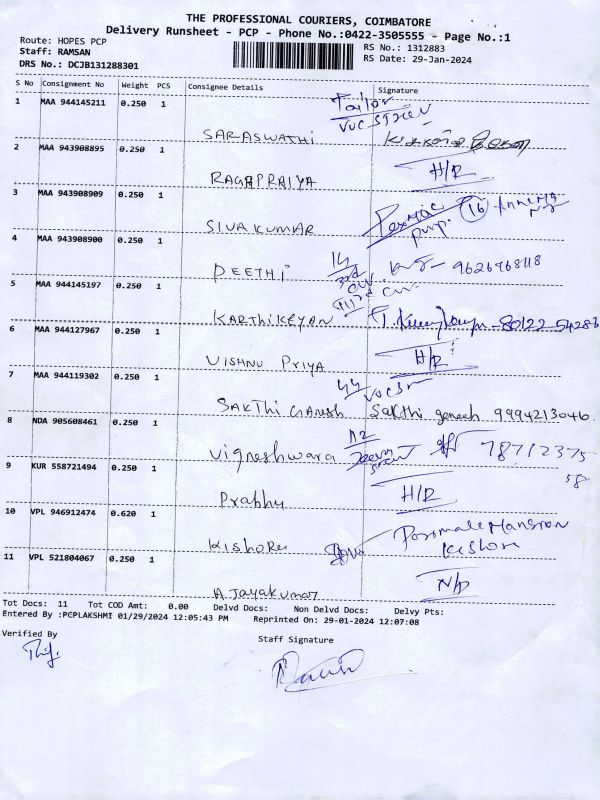 THE PROFESSIONAL COURIERS, COIMBATORE
Delivery Runsheet - PCP - Phone No.:0422-3505555 - Page No.:1
Route: HOPES PCP
RS No.: 1312883
Staff: RAMSAN
RS Date: 29-Jan-2024
DRS No.: DCJB131288301
S No Consignment No Weight PCS Consignee Details Signature
1 MAA 944145211 0.250 1 Tailor
VOC Street
SARASWATHI
2 MAA 943908895 0.250 1 H/R
RAGAPRAIYA
3 MAA 943908909 0.250 1 16
SIVAKUMAR
4 MAA 943908900 0.250 1 14
DEETHI 9626468118
5 MAA 944145197 0.250 1
KARTHIKEYAN 80122 54283
6 MAA 944127967 0.250 1 H/R
VISHNU PRIYA
7 MAA 944119302 0.250 1 44
SAKTHI GANESH Sakthi ganesh 9994213046
8 NDA 905608461 0.250 1 12
Vigneshwara 78712375
58
9 KUR 558721494 0.250 1 H/R
Prabhu
10 VPL 946912474 0.620 1 Mansion
Kishore Kishore
11 VPL 521804067 0.250 1 N/D
AJayakumar
Tot Docs: 11 Tot COD Amt: 0.00 Delvd Docs: Non Delvd Docs: Delvy Pts:
Entered By :PCPLAKSHMI 01/29/2024 12:05:43 PM Reprinted On: 29-01-2024 12:07:08
Verified By
Staff Signature